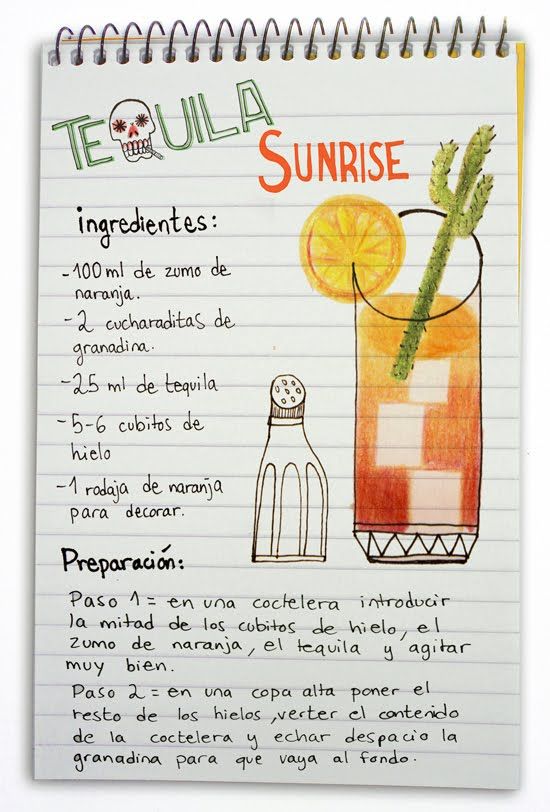 TEQUILA
SUNRISE
ingredientes:
-100 ml de zumo de
naranja.
-2 cucharaditas de
granadina.
-25 ml de tequila
-5-6 cubitos de
hielo
-1 rodaja de naranja
para decorar.
Preparación:
Paso 1 = en una coctelera introducir
la mitad de los cubitos de hielo, el
zumo de naranja, el tequila y agitar
muy bien.
Paso 2 = en una copa alta poner el
resto de los hielos, verter el contenido
de la coctelera y echar despacio la
granadina para que vaya al fondo.